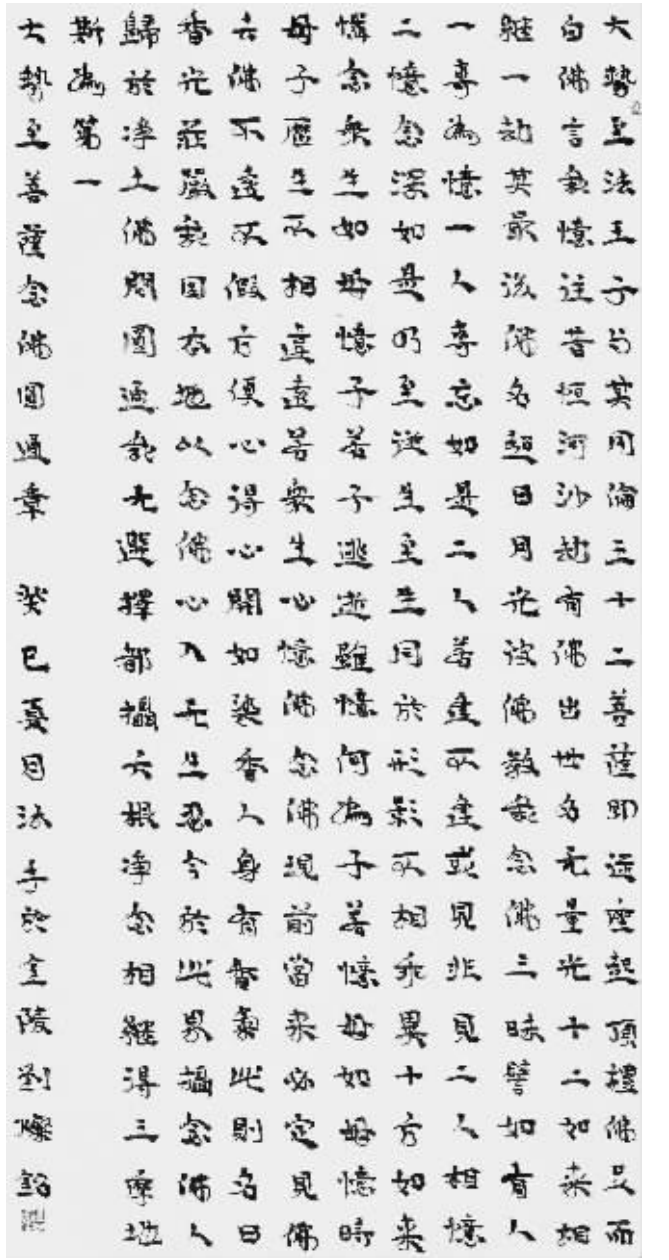 大勢至法王子与其同倫五十二菩薩即従座起頂禮佛足而
白佛言我憶往昔恒河沙劫有佛出世名无量光十二如来相
継一劫其最後佛名超日月光彼佛教我念佛三昧譬如有人
一專為憶一人專忘如是二人若逢不逢或見非見二人相憶
二憶念深如是乃至従生至生同於形影不相乖異十方如来
憐念衆生如母憶子若子逃逝雖憶何為子若憶母如母憶時
母子歷生不相違遠若衆生心憶佛念佛現前當来必定見佛
去佛不遠不假方便心得心開如染香人身有香氣此則名曰
香光莊嚴我因本地以念佛心入无生忍今於此界攝念佛人
歸於淨土佛問圓通我无選擇都攝六根淨念相継得三摩地
斯為第一
大勢至菩薩念佛圓通章 癸巳夏日法手於金陵劉燦銘